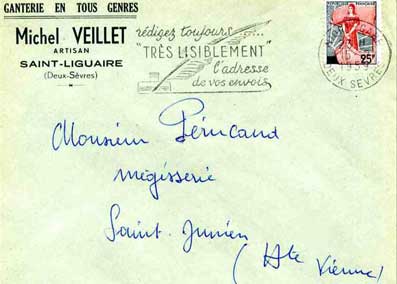 GANTERIE EN TOUS GENRES
Michel VEILLET
ARTISAN
SAINT-LIGUAIRE
(Deux-Sèvres)
rédigez toujours
"TRÈS LISIBLEMENT"
l'adresse
de vos envois
25F
DEUX SEVRES
Monsieur Péricaud
mégisserie
Saint-Junien
(Hte Vienne)